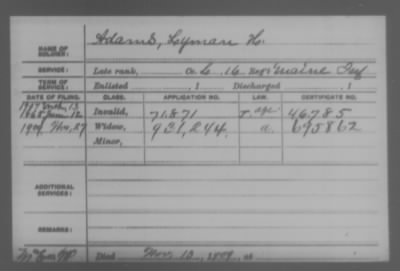 NAME OF SOLDIER: Adams, Lyman H.
SERVICE: Late rank, Co. C, 16 Reg't Maine Inf
TERM OF SERVICE: Enlisted , 1 Discharged , 1
DATE OF FILING. CLASS. APPLICATION NO. LAW. CERTIFICATE NO.
1907 Mch, 13
1865 June 12 Invalid, 71871 age 46785
1909, Nov, 27 Widow, 931,244 a. 695862
Minor,
ADDITIONAL SERVICES:
REMARKS:
Died Nov 10, 1909, at